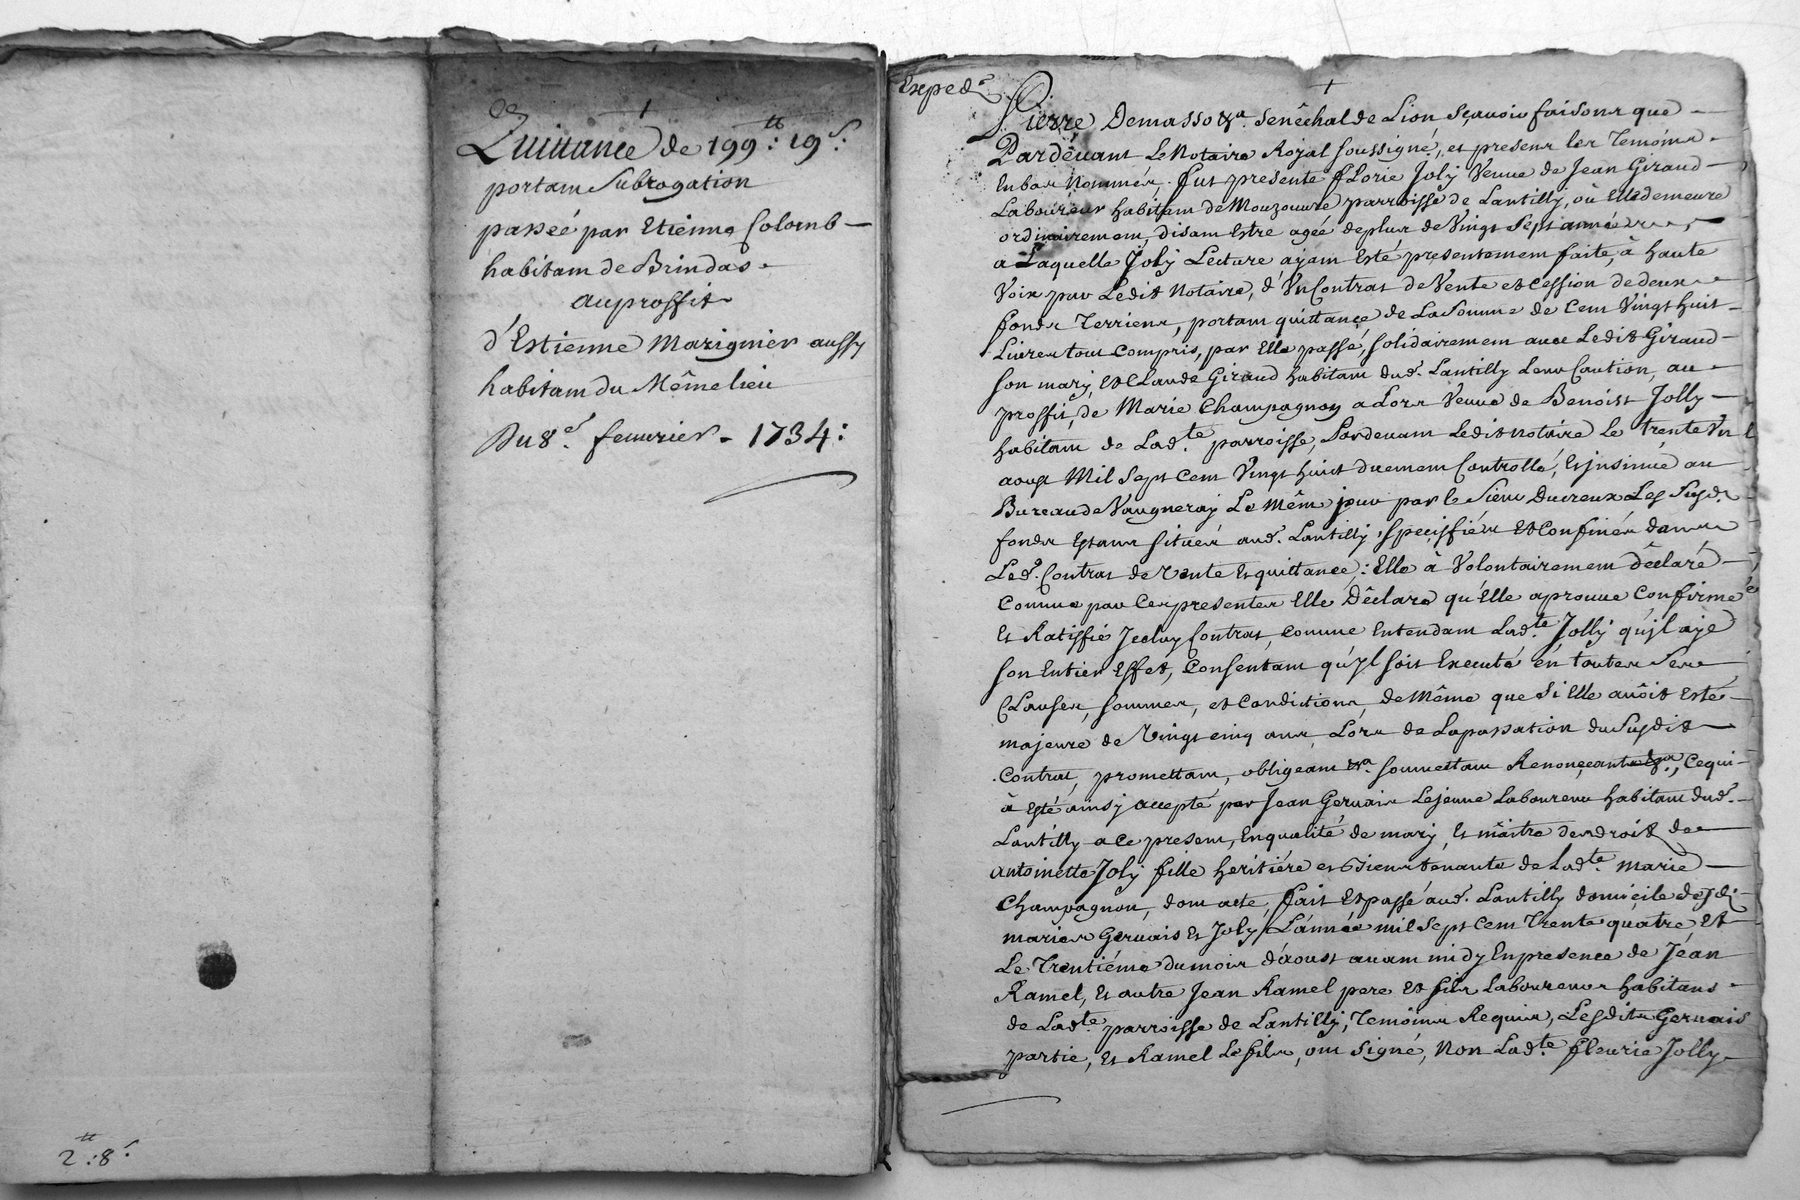 Quittance de 199 ᵗᵗ: 19 ˢ:
portant Subrogation
passée par Etienne Colomb
habitant de Brindas.
au proffit
d'Estienne Marignier aussy
habitant du Même lieu
Du 8e. feuvrier. 1734:
2 ᵗᵗ: 8 ˢ
Exped.
Pierre Demasso &a. Senêchal de Lion sçavoir faisons que
Pardêvant Le Notaire Royal soussigné, et presens les Temoins
En bas Nommés, fut presente fLorie Joly Veuve de Jean Giraud
Laboureur habitant de Mouzouvre parroisse de Lantilly, où Elle demeure
ordinairement, disant Estre agée deplus de Vingt Sept années
a Laquelle Joly Lecture ayant Esté presentement faite, à haute
Voix par Ledit Notaire, d'Un Contrat de Vente et Cession de deux
fonds Terriens, portant quittance de La Somme de Cent Vingt huit
Livres tout Compris, par Elle passé, solidairement avec Ledit Giraud
son mary, et CLaude Giraud habitant dud. Lantilly Leur Caution, au
proffit, de Marie Champagnon a Lors Veuve de Benoist Jolly
habitant de Ladte. parroisse, Pardevant Ledit notaire Le trente Un
aoust Mil Sept Cent Vingt huit duement Controllé, Et jnsinué au
Bureau de Vaugneray Le Mêm jour par le Sieur Ducreux Les Susds
fonds Estans situés aud. Lantilly, specifiés Et Confinés dans
Led. Contrat de Vente Et quittance; Elle à Volontairement dêclaré
Comme par Ces presentes Elle Dêclare qu'Elle aprouve Confirme
Et Ratiffie Jceluy Contrat, Comme Entendant Ladte. Jolly qu'jl aye
son Entier Effet, Consentant qu'jl soit Executé en toutes Ses
CLauses, sommes, et Condictions, de Même que Si Elle auôit Esté
majeure de Vingt cinq ans, Lors de La passation du Susdit
Contrat, promettant, obligeant &a. soumettant Renonçant &a, Ce qui
à Esté ainsy accepté par Jean Gervais Lejeune Laboureur habitant dud.
Lantilly a Ce present, En qualité de mary, Et mâitre des droits de
Antoinette Joly fille heritiére et Biens tenante de Ladte. Marie
Champagnon, dont acte, fait Et passé aud. Lantilly domicile desdi
maries Gervais Et Joly L'année mil Sept Cent Trente quatre, Et
Le Trentiéme du mois d'aoust avant midy En presence de Jéan
Ramel, Et autre Jean Ramel pere Et fils Laboureurs habitans
de Ladte. parroisse de Lantilly, Temoins Requis, Lesdits Gervais
partie, Et Ramel Le fils, ont signé, Non Ladte. fleurie Jolly